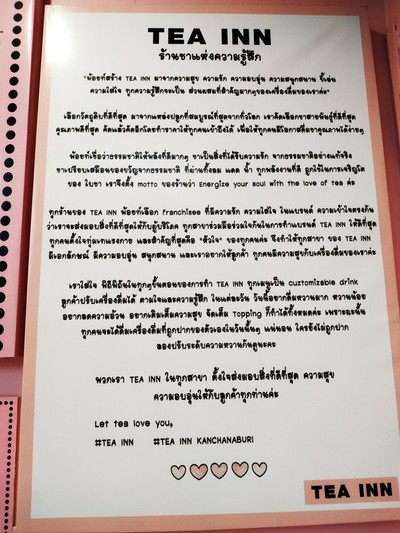 TEA INN
ร้านชาแห่งความรู้สึก
"พ้อยท์สร้าง TEA INN มาจากความสุข ความรัก ความอบอุ่น ความสนุกสนาน ขี้เล่น
ความใส่ใจ ทุกความรู้สึกจะเป็น ส่วนผสมที่สำคัญมากๆของเครื่องดื่มของเราค่ะ"
เลือกวัตถุดิบที่ดีที่สุด มาจากแหล่งปลูกที่สมบูรณ์ที่สุดจากทั่วโลก เราคัดเลือกชาสายพันธุ์ที่ดีที่สุด
คุณภาพดีที่สุด คิดแล้วคิดอีกโดยทำราคาให้ทุกคนเข้าถึงได้ เพื่อให้ทุกคนมีโอกาสดื่มชาคุณภาพได้ง่ายๆ
พ้อยท์เชื่อว่าธรรมชาติให้พลังที่ดีมากๆ ชาเป็นสิ่งที่ได้รับความรัก จากธรรมชาติอย่างแท้จริง
ชาเปรียบเสมือนของขวัญจากธรรมชาติ ที่ผ่านทั้งลม แดด น้ำ ทุกพลังงานที่ดี ถูกใช้ในการเจริญโต
ของ ใบชา เราจึงตั้ง motto ของร้านว่า Energize your soul with the love of tea ค่ะ
ทุกร้านของ TEA INN พ้อยท์เลือก franchisee ที่มีความรัก ความใส่ใจ ในแบรนด์ ความเข้าใจตรงกัน
ว่าเราจะส่งมอบสิ่งที่ดีที่สุดให้กับผู้บริโภค ทุกสาขาร่วมมือร่วมใจกันในการทำแบรนด์ TEA INN ให้ดีที่สุด
ทุกคนตั้งใจทุ่มเทแรงกาย และสำคัญที่สุดคือ "หัวใจ" ของทุกคนค่ะ จึงทำให้ทุกสาขา ของ TEA INN
มีเอกลักษณ์ มีความอบอุ่น สนุกสนาน และเราอยากให้ลูกค้า ทุกคนมีความสุขกับเครื่องดื่มของเราค่ะ
เราใส่ใจ พิถีพิถันในทุกๆขั้นตอนของการทำ TEA INN ทุกเมนูเป็น cuztomizable drink
ลูกค้าปรับเครื่องดื่มได้ ตามใจและความรู้สึก ในแต่ละวัน วันนี้อยากดื่มหวานมาก หวานน้อย
อยากลดความอ้วน อยากเติมเต็มความสุข จัดเต็ม Topping ก็ทำได้ทั้งหมดค่ะ เพราะฉะนั้น
ทุกคนจะได้ดื่มเครื่องดื่มที่ถูกปากของตัวเองในวันนั้นๆ แน่นอน ใครยังไม่ถูกปาก
ลองปรับระดับความหวานกันดูนะคะ
พวกเรา TEA INN ในทุกสาขา ตั้งใจส่งมอบสิ่งที่ดีที่สุด ความสุข
ความอบอุ่นให้กับลูกค้าทุกท่านค่ะ
Let tea love you,
#TEA INN #TEA INN KANCHANABURI
TEA INN